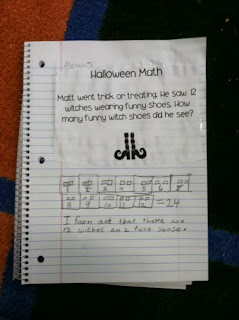 Halloween Math
Matt went trick or treating. He saw 12
witches wearing funny shoes. How
many funny witch shoes did he see?
1 2 3 4 5 6 7
8 9 10 11 12 = 24
I foon aot that there are
12 wiches an 2 fune shose.